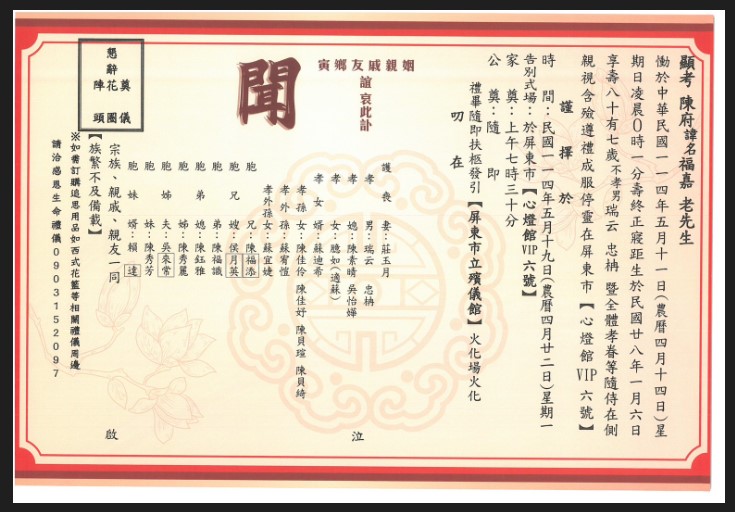 顯考 陳府諱名福嘉 老先生
慟於中華民國一一四年五月十一日(農曆四月十四日)星
期日凌晨0時一分壽終正寢距生於民國廿八年一月六日
享壽八十有七歲不孝男瑞云 忠柟 暨全體孝眷等隨侍在側
親視含殮遵禮成服停靈在屏東市【心燈館VIP六號】
謹擇於
時 間:民國一一四年五月十九日(農曆四月廿二日)星期一
告別式場:於屏東市【心燈館VIP六號】
家 奠:上午七時三十分
公 奠:隨 即
禮畢隨即扶柩發引【屏東市立殯儀館】火化場火化
叨 在
姻親戚友鄉寅
誼哀此訃
聞
護喪妻:莊玉月
孝 男:瑞云 忠柟
孝 媳:陳素晴 吳怡嬋
孝 女:聰如(適蘇)
孝女婿:蘇迪希
孝 孫 女:陳佳伶 陳佳妤 陳貝瑄 陳貝綺
孝外孫:蘇宥愷
孝外孫女:蘇宜婕
胞 兄:陳福添
胞兄嫂:侯月英
胞 弟:陳福讖
胞弟媳:陳鈺雅
胞 姊:陳秀麗
胞姊夫:吳來常
胞 妹:陳秀芳
胞妹婿:賴 達
泣
宗族、親戚、親友一同
啟
【族繁不及備載】
懇辭
奠儀
花圈
陣頭
※如需訂購追思用品如西式花籃等相關禮儀周邊
請洽感恩生命禮儀0903152097